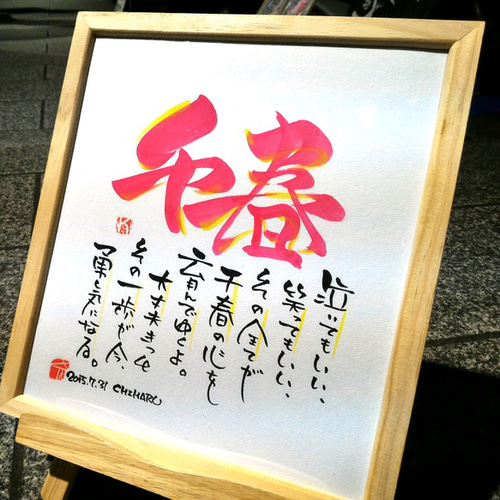 千春
泣いてもいい、
笑ってもいい、
その全てが
千春の心を
育んでゆくよ。
大丈夫きっと
その一歩が今、
勇気になる。
2015.7.31 CHIHARU